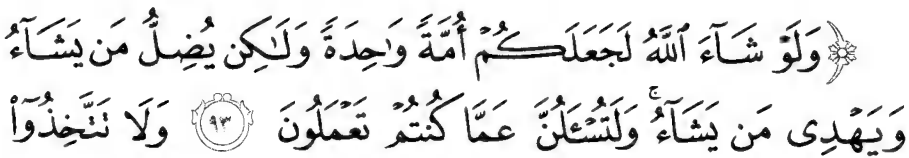 ﴿وَلَوۡ شَآءَ ٱللَّهُ لَجَعَلَكُمۡ أُمَّةٗ وَٰحِدَةٗ وَلَٰكِن يُضِلُّ مَن يَشَآءُ
وَيَهۡدِي مَن يَشَآءُۚ وَلَتُسۡـَٔلُنَّ عَمَّا كُنتُمۡ تَعۡمَلُونَ ٩٣ وَلَا تَتَّخِذُوٓاْ